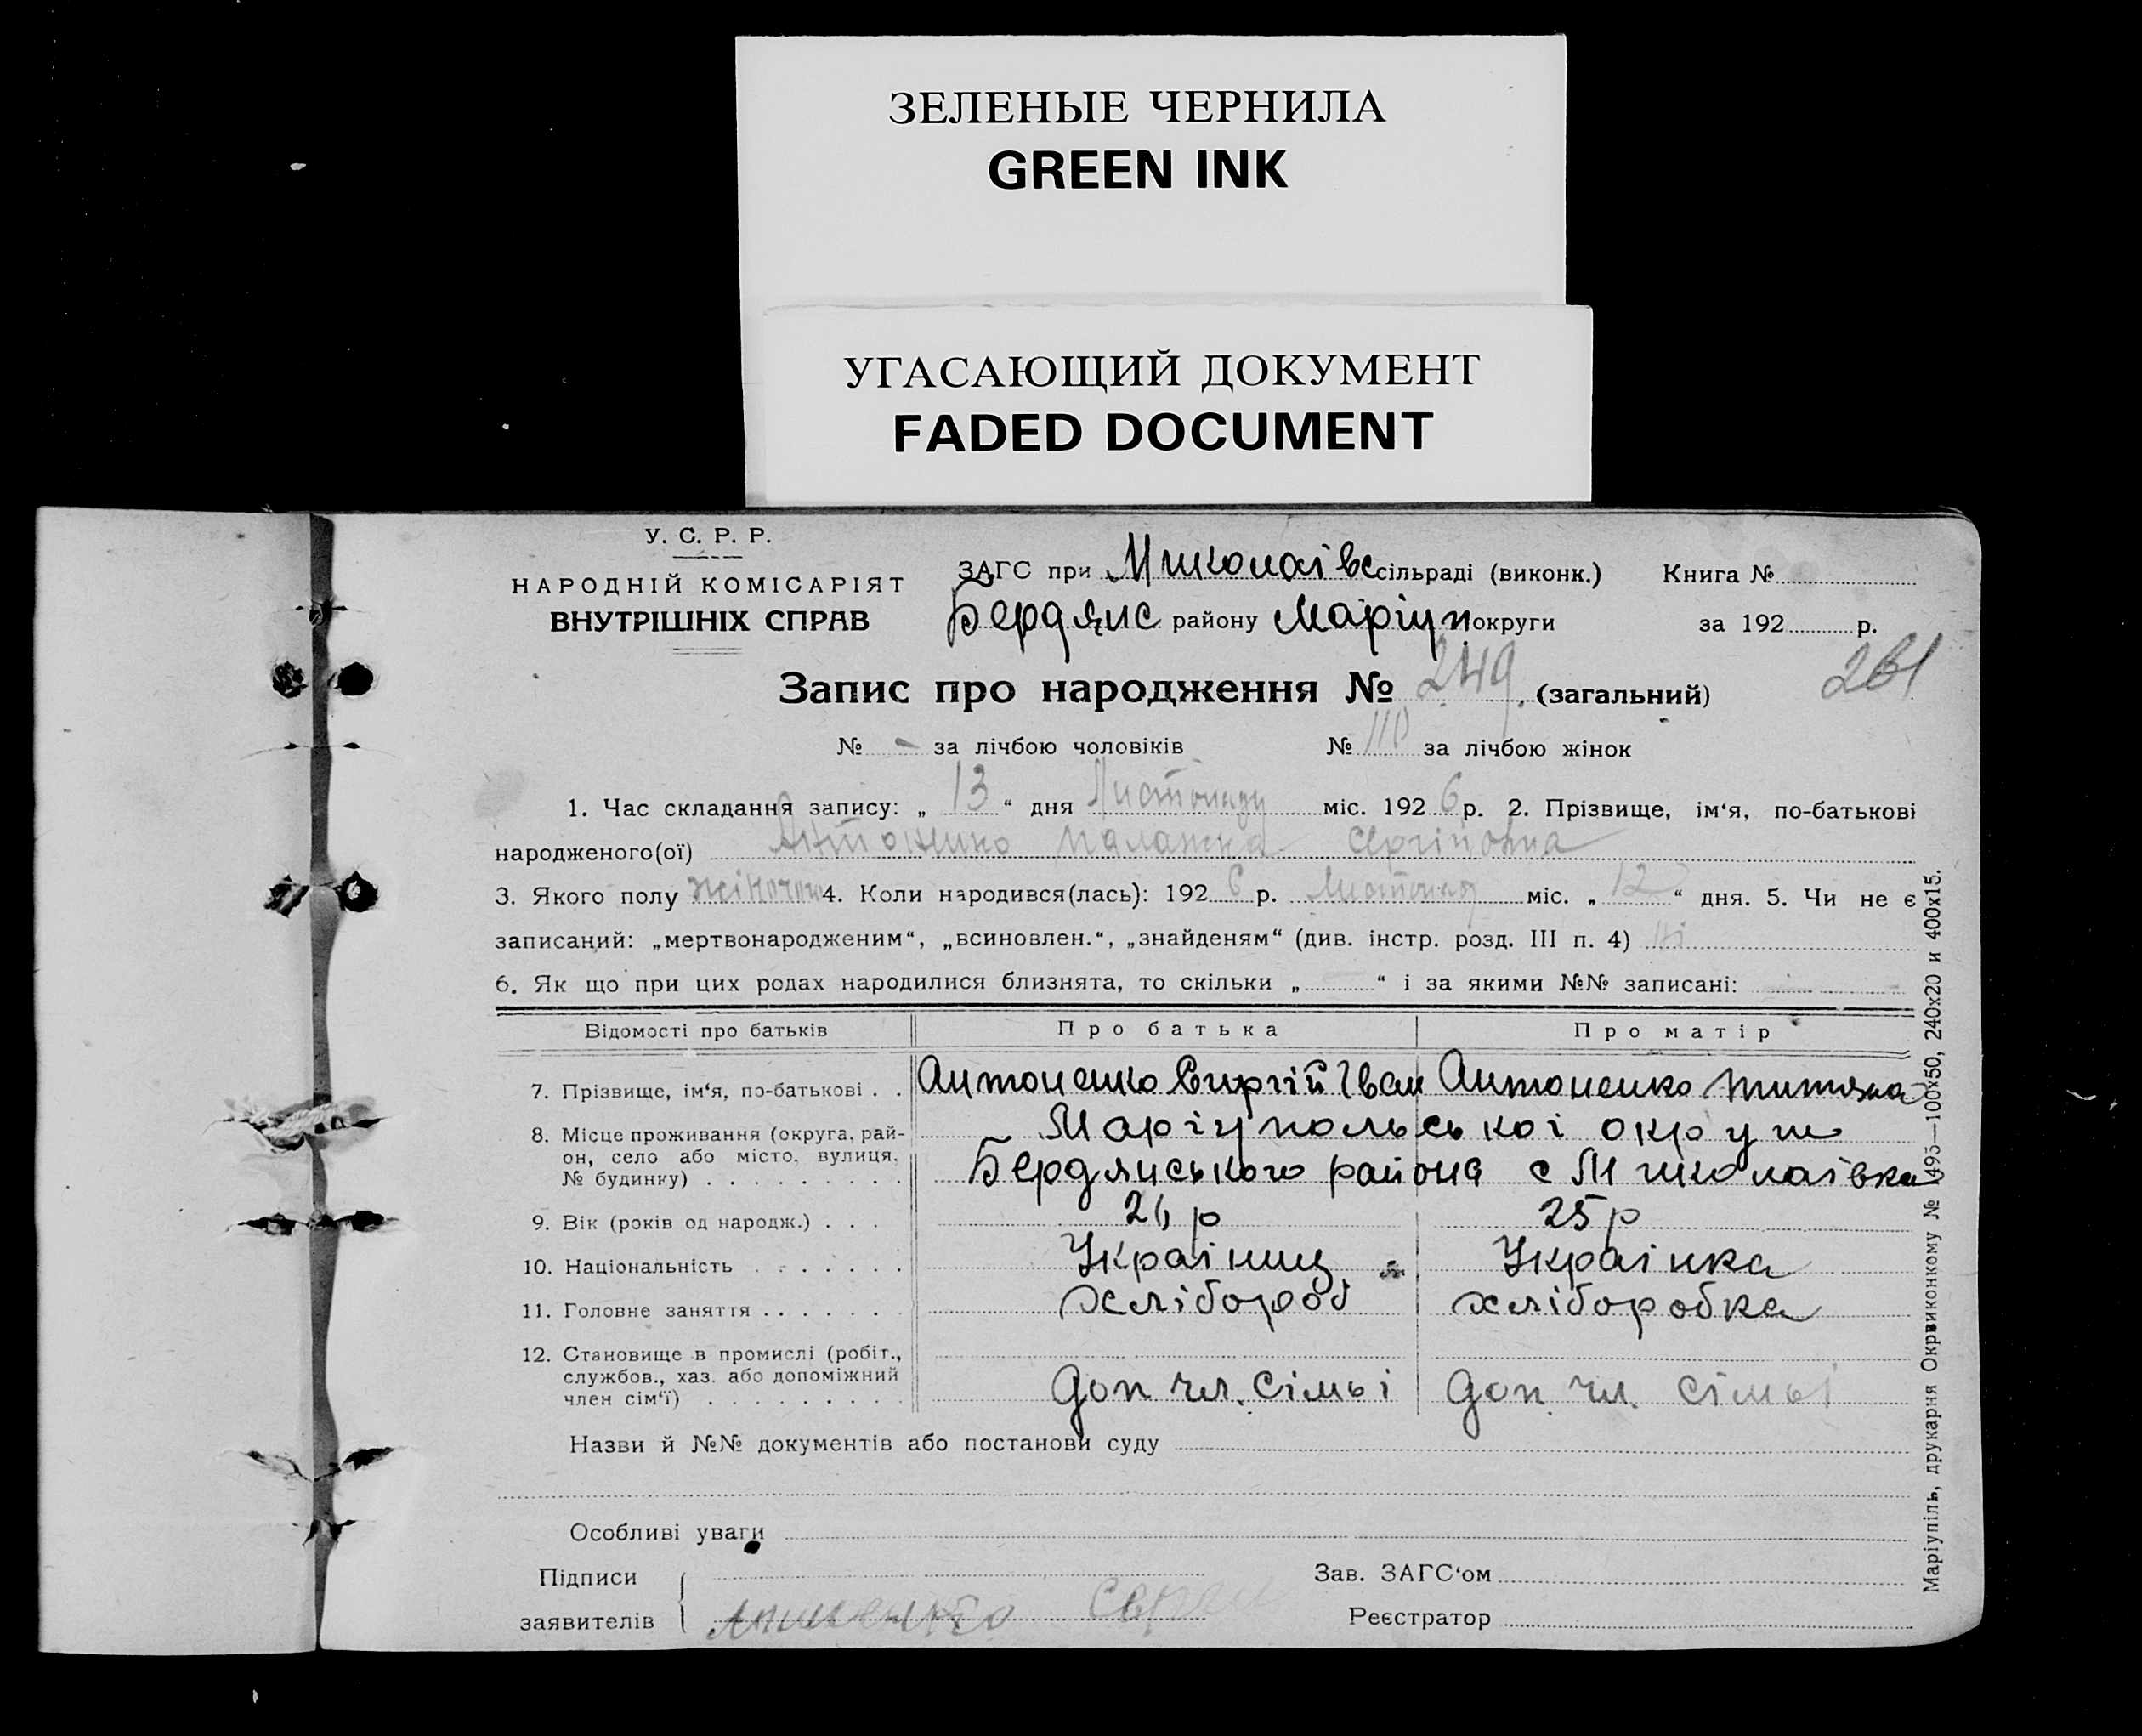 ЗЕЛЕНЫЕ ЧЕРНИЛА
GREEN INK
УГАСАЮЩИЙ ДОКУМЕНТ
FADED DOCUMENT
У. С. Р. Р.
НАРОДНІЙ КОМІСАРІЯТ
ВНУТРІШНІХ СПРАВ
ЗАГС при Миколаівс сільраді (виконк.) Книга №
Бердянс району Маріуп округи за 192 р.
261
Запис про народження № 249 (загальний)
№ - за лічбою чоловіків № 110 за лічбою жінок
1. Час складання запису: „ 13 “ дня Листопаду міс. 192 6 р. 2. Прізвище, ім‘я, по-батькові
народженого(ої) Антоненко Палажка Сергіівна
3. Якого полу жіночого 4. Коли народився(лась): 192 6 р. Листопад міс. „ 12 “ дня. 5. Чи не є
записаний: „мертвонародженим“, „всиновлен.“, „знайденям“ (див. інстр. розд. III п. 4) ні
6. Як що при цих родах народилися близнята, то скільки „ “ і за якими №№ записані:
Відомості про батьків Про батька Про матір
7. Прізвище, ім‘я, по-батькові . . Антоненко Сиргій Іван Антоненко Титяна
8. Місце проживання (округа, рай- Маріупольськоі округи
он, село або місто, вулиця,
№ будинку) Бердянського района с Миколаівка
9. Вік (років од народж.) . . . 26 р 25 р
10. Національність Украіниц Украінка
11. Головне заняття хлібороб хліборобка
12. Становище в промислі (робіт.,
службов., хаз. або допоміжний
член сім‘ї) Доп чл. сімьі Доп. чл. сімьі
Назви й №№ документів або постанови суду
Особливі уваги
Підписи Зав. ЗАГС‘ом
заявителів Реєстратор
Маріупіль, друкарня Окрвиконкому № 495—100х50, 240х20 и 400х15.